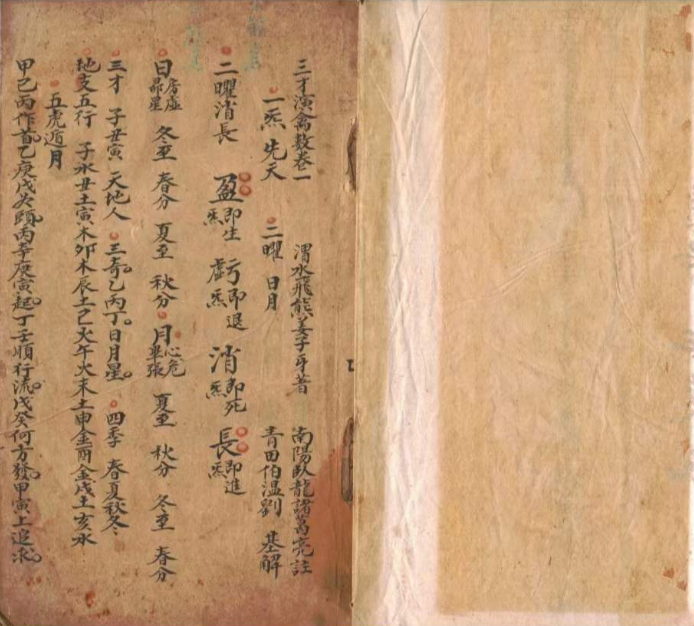 三才演禽数卷一　渭水飛熊姜子牙著　南陽臥龍諸葛亮註
一炁先天　二曜日月　青田伯温劉基解
二曜消長　盈即生炁　虧即退炁　消即死炁　長即進炁
日房虛昴星　冬至　春分　夏至　秋分　月心危畢張　夏至　秋分　冬至　春分
三才　子丑寅　天地人　三奇乙丙丁日月星　四季　春夏秋冬
地支五行　子水丑土寅木卯木辰土巳火午火未土申金酉金戌土亥水
五虎遁月
甲己丙作首乙庚戊為頭丙辛庚寅起丁壬順行流戊癸何方發甲寅上追求